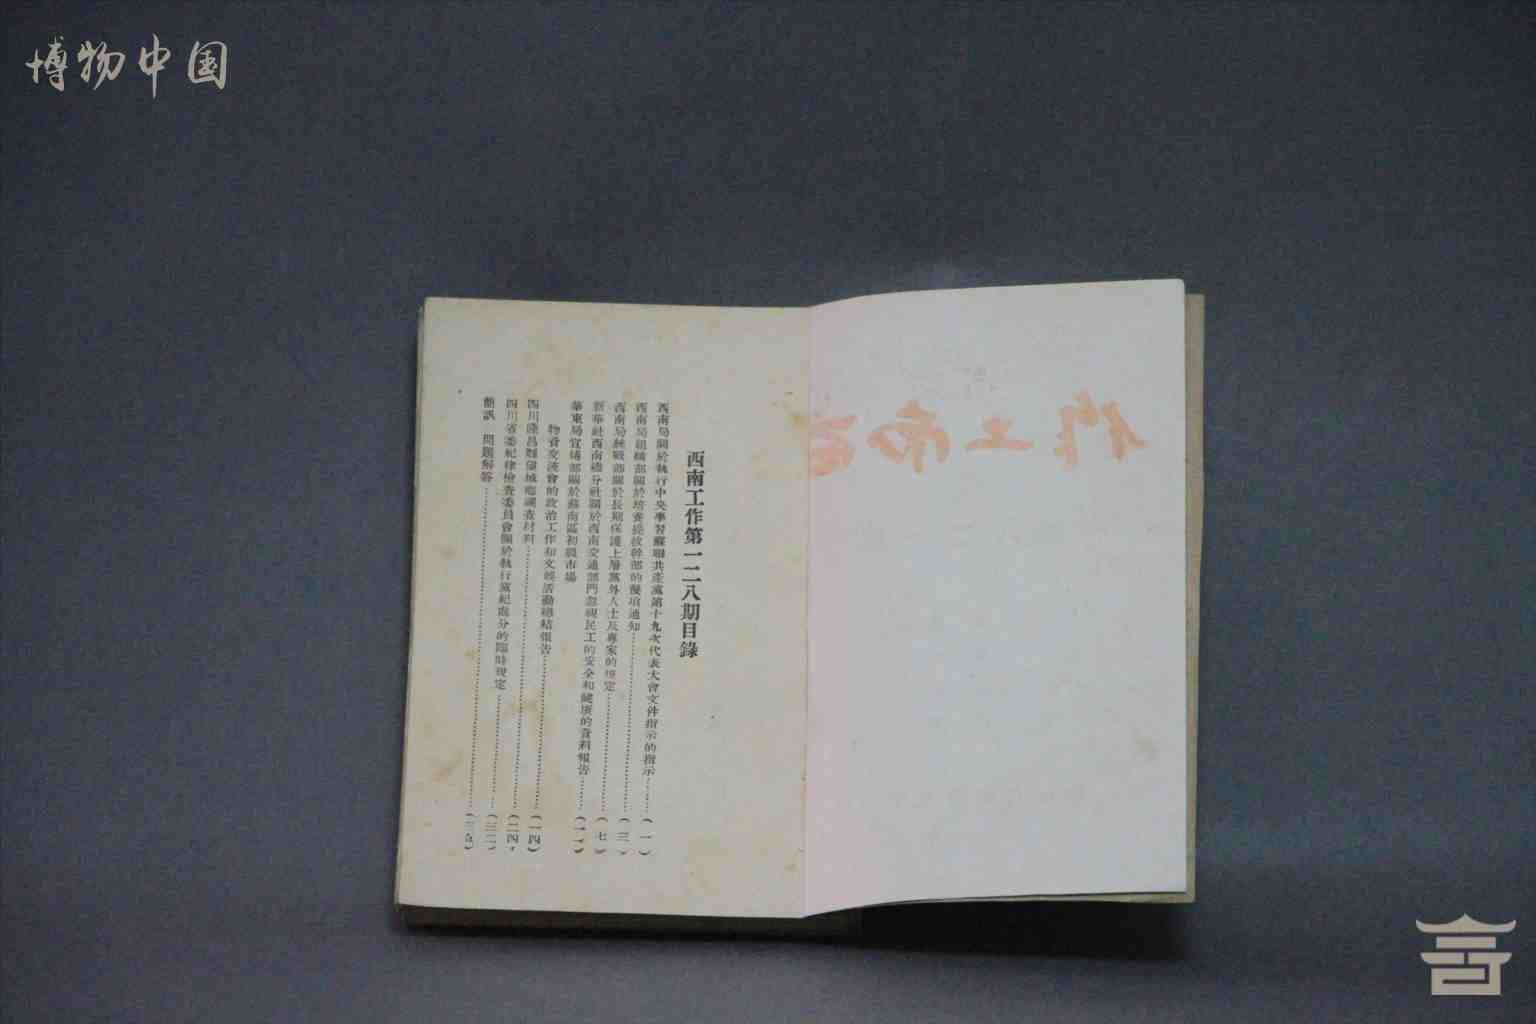 博物中国
西南工作第一二八期目錄
西南局關於執行中央學習蘇聯共產黨第十九次代表大會文件指示的指示……(一)
西南局組織部關於培養提拔幹部的幾項通知……(三)
西南局統戰部關於長期保護上層黨外人士及專家的規定……(七)
新華社西南總分社關於西南交通部門忽視民工的安全和健康的資料報告……
華東局宣傳部關於蘇南區初級市場
物資交流會的政治工作和文娛活動總結報告……(一四)
四川隆昌縣 城鄉調查材料……(二四)
四川省委紀律檢查委員會關於執行黨紀處分的臨時規定……
簡訊 問題解答……(三五)
西南工作